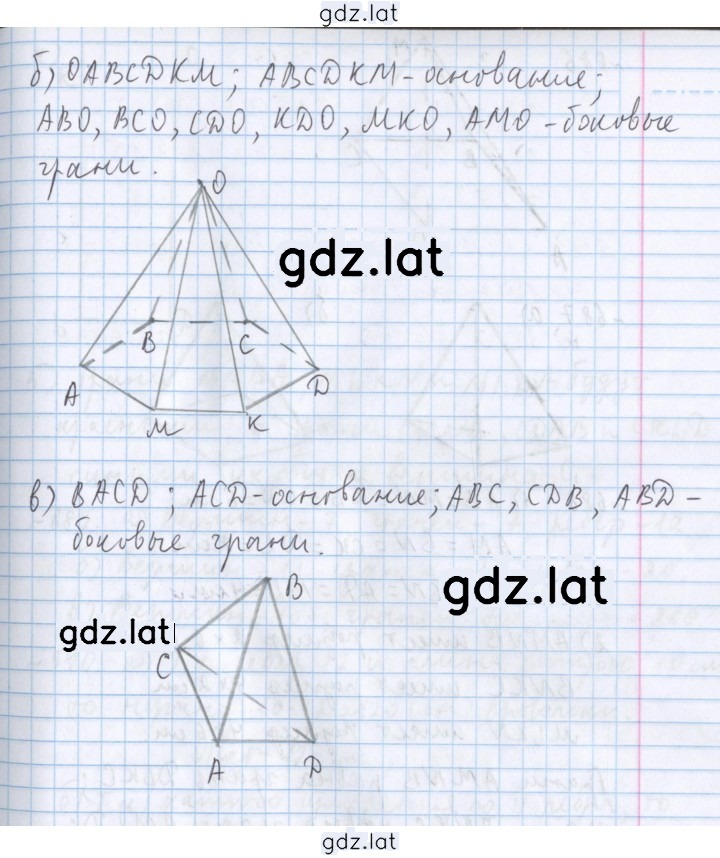 gdz.lat
б) OABCDKM; ABCDKM-основание;
ABO, BCO, CDO, KDO, MKO, AMO - боковые
грани.
O
gdz.lat
B C
A D
M K
в) BACD; ACD-основание; ABC, CDB, ABD-
боковые грани.
B
gdz.lat
gdz.lat
C
A D
gdz.lat